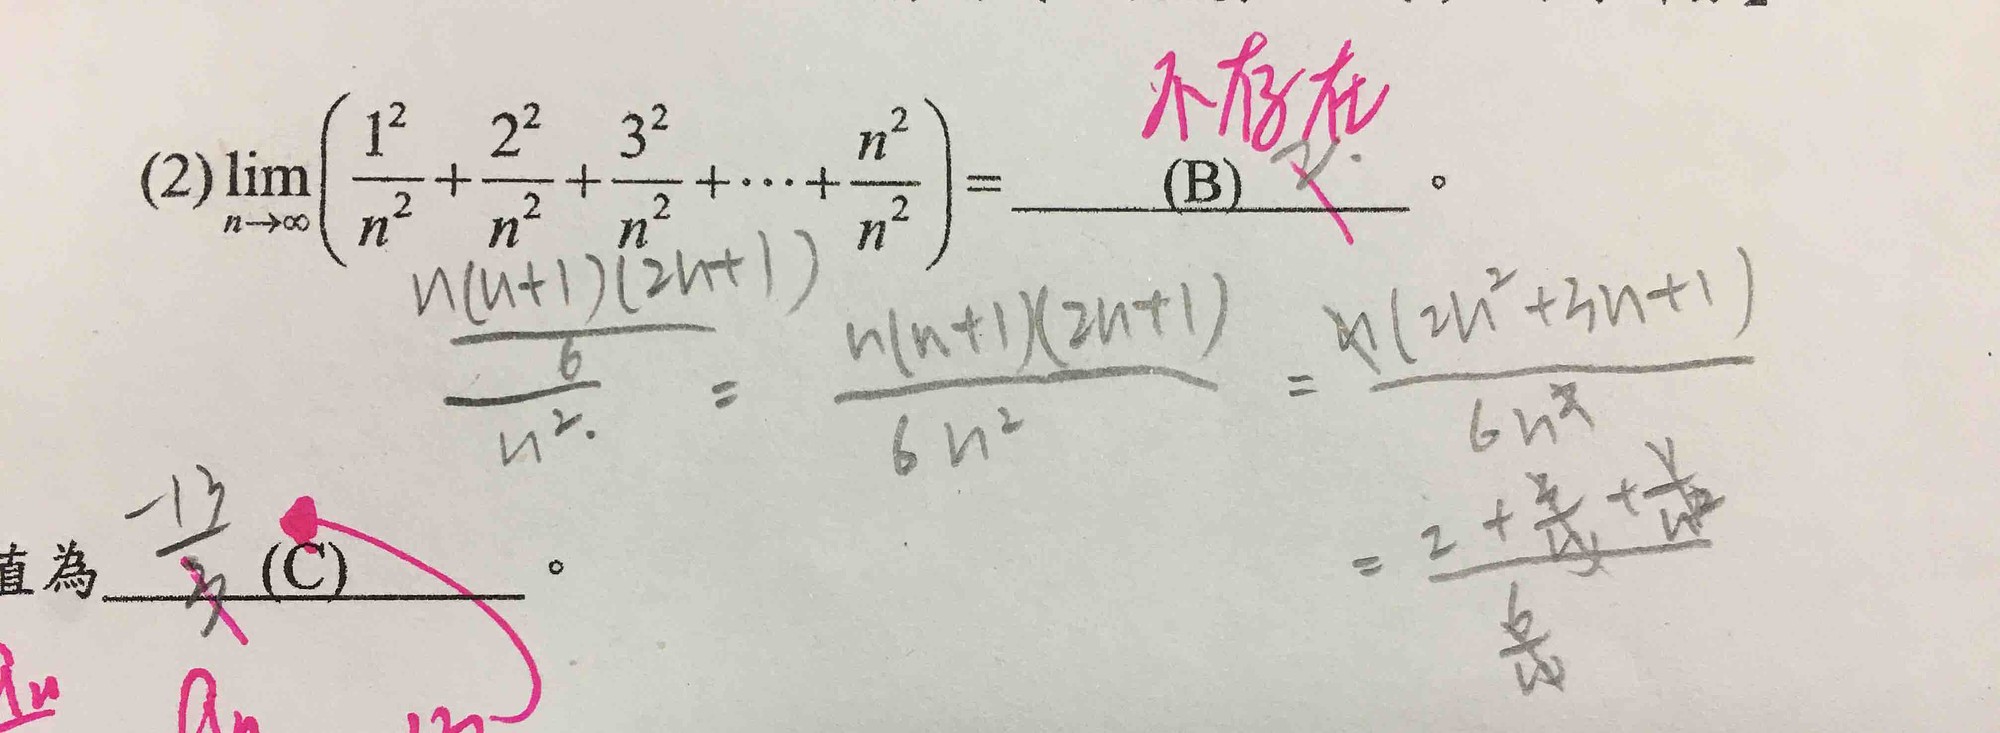 不存在
(2) lim n→∞ ( 1²/n² + 2²/n² + 3²/n² + ⋯ + n²/n² ) = (B) 2. 。
n(n+1)(2n+1)/6 / n². = n(n+1)(2n+1)/6n² = n(2n²+3n+1)/6n²
= 2 + 3/n + 1/n² / 6/n
值為 -13/3 (C) 。
an an